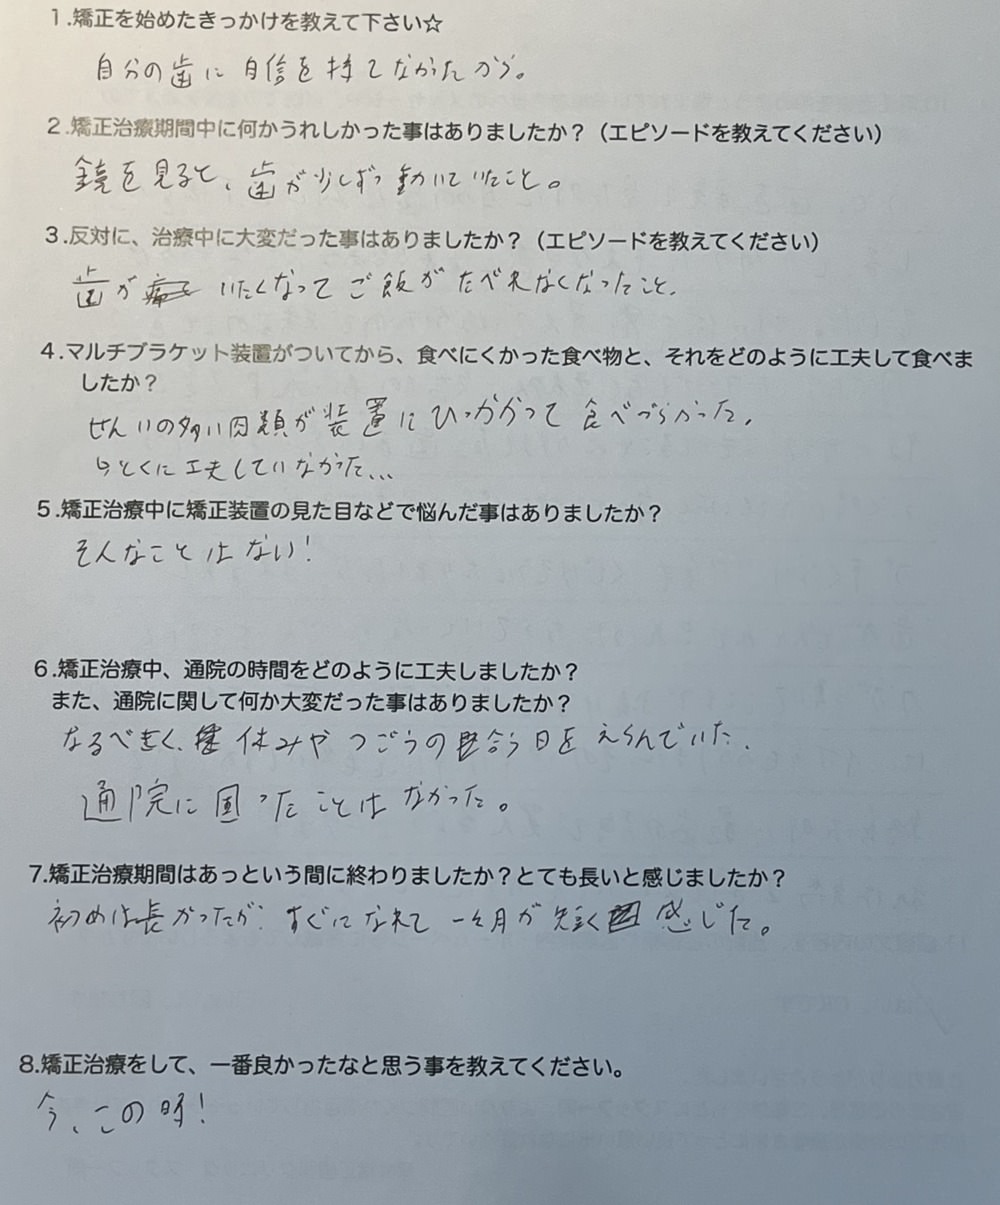 1.矯正を始めたきっかけを教えて下さい☆
自分の歯に自信を持てなかったから。
2.矯正治療期間中に何かうれしかった事はありましたか?(エピソードを教えてください)
鏡を見ると、歯が少しずつ動いていたこと。
3.反対に、治療中に大変だった事はありましたか?(エピソードを教えてください)
歯がいたくなってご飯がたべれなくなったこと。
4.マルチブラケット装置がついてから、食べにくかった食べ物と、それをどのように工夫して食べま
したか?
せんいの多い肉類が装置にひっかかって食べづらかった。
↳とくに工夫していなかった...
5.矯正治療中に矯正装置の見た目などで悩んだ事はありましたか?
そんなことはない!
6.矯正治療中、通院の時間をどのように工夫しましたか?
また、通院に関して何か大変だった事はありましたか?
なるべく、休みやつごうの合う日をえらんでいた。
通院に困ったことはなかった。
7.矯正治療期間はあっという間に終わりましたか?とても長いと感じましたか?
初めは長かったが、すぐになれて一ヶ月が短く感じた。
8.矯正治療をして、一番良かったなと思う事を教えてください。
今、この時!